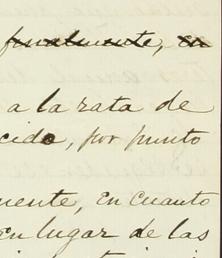 finalmente, en
a la rata de
cido, por punto
mente, en cuanto
en lugar de las